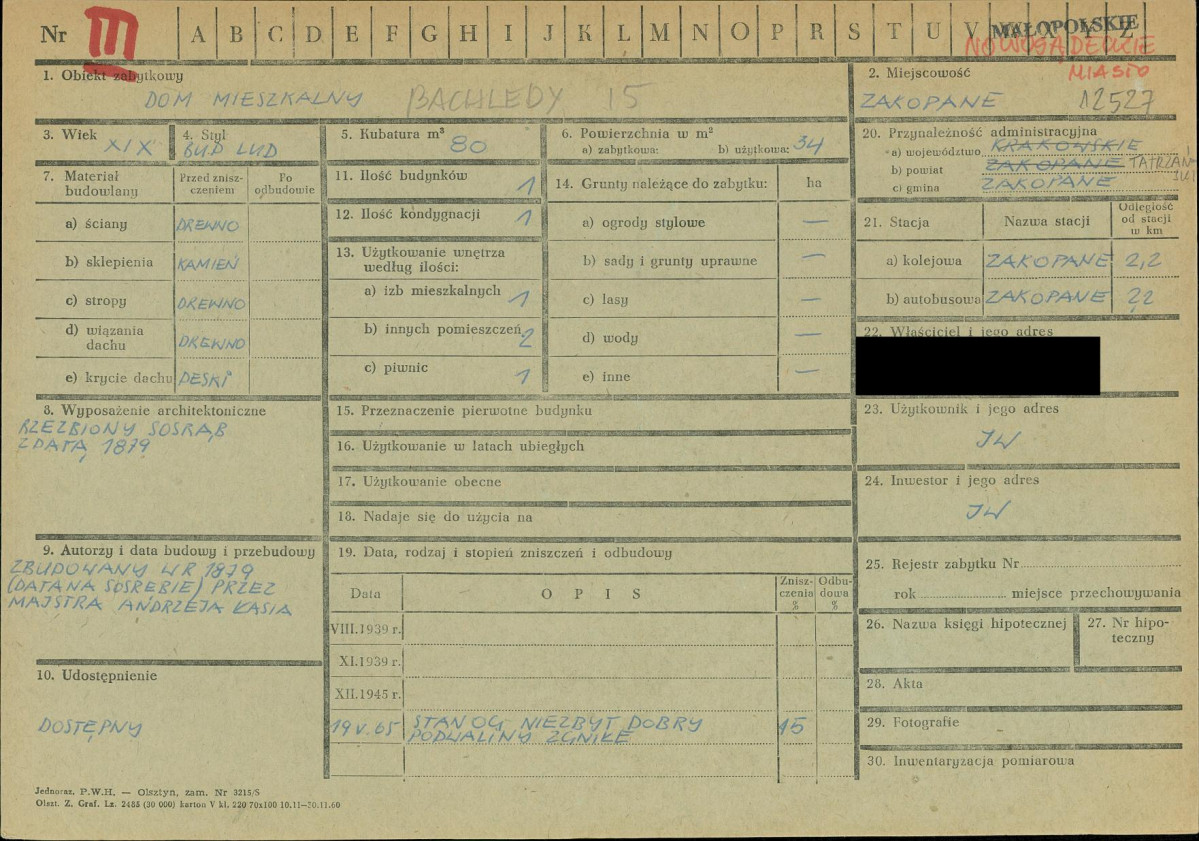 Nr III A B C D E F G H I J K L M N O P R S T U V X Y Z
MAŁOPOLSKIE
NOWOSĄDECKIE
MIASTO
1. Obiekt zabytkowy
DOM MIESZKALNY BACHLEDY 15
2. Miejscowość
ZAKOPANE 12527
3. Wiek
XIX
4. Styl
BUD LUD
5. Kubatura m³
80
6. Powierzchnia w m²
a) zabytkowa: b) użytkowa: 34
20. Przynależność administracyjna
a) województwo KRAKOWSKIE
b) powiat ZAKOPANE TATRZAŃSKI
c) gmina ZAKOPANE
7. Materiał budowlany
Przed zniszczeniem
Po odbudowie
a) ściany DREWNO
b) sklepienia KAMIEŃ
c) stropy DREWNO
d) wiązania dachu DREWNO
e) krycie dachu DESKI
11. Ilość budynków 1
12. Ilość kondygnacji 1
13. Użytkowanie wnętrza
według ilości:
a) izb mieszkalnych 1
b) innych pomieszczeń 2
c) piwnic 1
14. Grunty należące do zabytku: ha
a) ogrody stylowe —
b) sady i grunty uprawne —
c) lasy —
d) wody —
e) inne —
21. Stacja Nazwa stacji Odległość od stacji w km
a) kolejowa ZAKOPANE 2,2
b) autobusowa ZAKOPANE 2,2
22. Właściciel i jego adres
23. Użytkownik i jego adres
JW
24. Inwestor i jego adres
JW
8. Wyposażenie architektoniczne
RZEZBIONY SOSRĄB
Z DATĄ 1879
15. Przeznaczenie pierwotne budynku
16. Użytkowanie w latach ubiegłych
17. Użytkowanie obecne
18. Nadaje się do użycia na
9. Autorzy i data budowy i przebudowy
ZBUDOWANY W R 1879
(DATA NA SOSREBIE) PRZEZ
MAJSTRA ANDRZEJA KASIA
10. Udostępnienie
DOSTĘPNY
19. Data, rodzaj i stopień zniszczeń i odbudowy
Data OPIS Zniszczenia % Odbudowa %
VIII.1939 r.
XI.1939 r.
XII.1945 r.
19 V. 65 STAN OG. NIEZBYT DOBRY 15
PODWALINY ZGNIŁE
25. Rejestr zabytku Nr
rok miejsce przechowywania
26. Nazwa księgi hipotecznej
27. Nr hipoteczny
28. Akta
29. Fotografie
30. Inwentaryzacja pomiarowa
Jednoraz. P.W.H. — Olsztyn, zam. Nr 3215/S
Olszt. Z. Graf. Lz. 2485 (30 000) karton V kl. 220 70x100 10.11—30.11.60